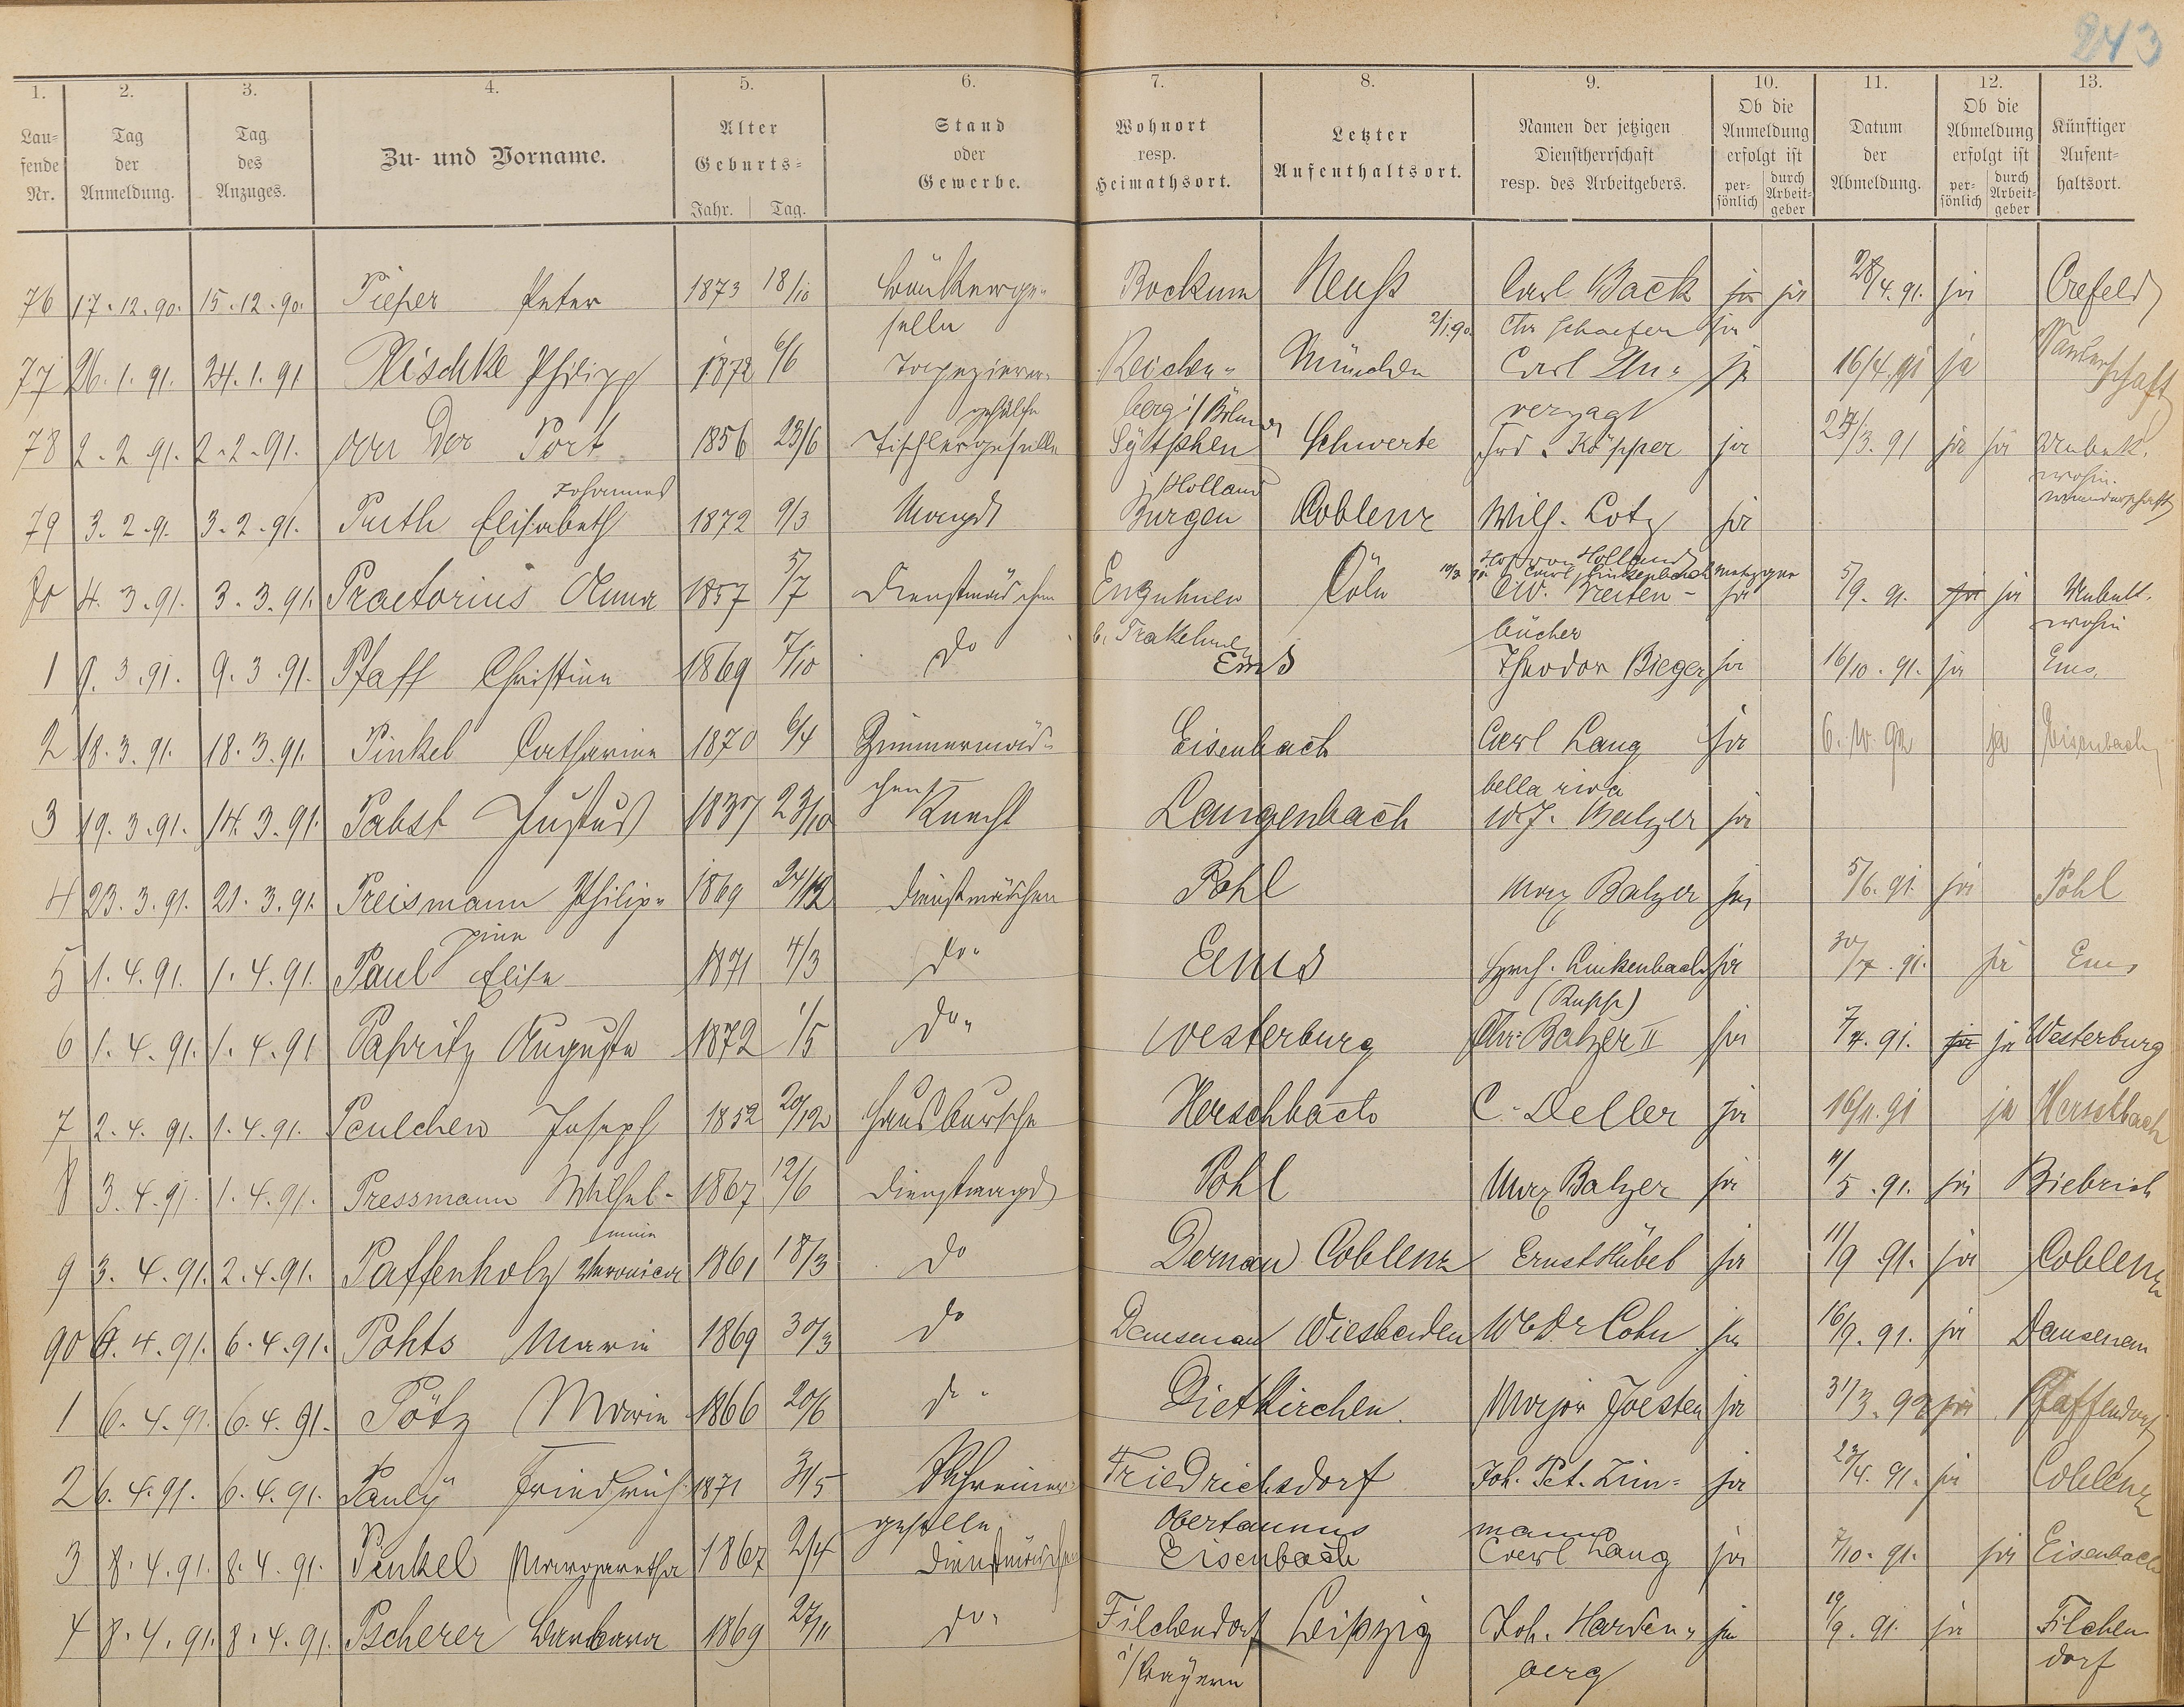 243
1. 2. 3. 4. 5. 6. 7. 8. 9. 10. 11. 12. 13.
Lau=
fende
Nr.
Tag
der
Anmeldung.
Tag
des
Anzuges.
Zu- und Vorname.
Alter
Geburts=
Jahr. Tag.
Stand
oder
Gewerbe.
Wohnort
resp.
Heimathsort.
Letzter
Aufenthaltsort.
Namen der jetzigen
Dienstherrschaft
resp. des Arbeitgebers.
Ob die
Anmeldung
erfolgt ist
per=
sönlich
durch
Arbeit=
geber
Datum
der
Abmeldung.
Ob die
Abmeldung
erfolgt ist
per=
sönlich
durch
Arbeit=
geber
Künftiger
Aufent=
haltsort.
76 17.12.90. 15.12.90. Pieper Peter 1873 18/10 Bäckerge- Bockum Neuß Carl Back ja ja 28/4.91. ja Crefeld
selle 2/1.90. Chr Schaefer ja
77 26.1.91. 24.1.91 Plischke Philipp 1872 6/6 Tapezierer- Reichen- München Carl Un- ja 16/4.91 ja Wanderschaft
gehülfe berg i/Böhmen verzagt
78 2.2.91. 2.2.91. von der Port 1856 23/6 Tischlergeselle Schwerte Frd. Köpper ja 24/3.91 ja ja Unbek.
Johannes Holland wohin.
Wanderschaft
79 3.2.91. 3.2.91. Puth Elisabeth 1872 9/3 Magd Burgen Coblenz Wilh. Lotz ja
Hof von Holland
10/3 91. Carl Linkenbach Metzger
80 4.3.91. 3.3.91. Praetorius Anna 1857 5/7 Dienstmädchen Enzuhnen Cöln Ew. Breiten- ja 5/9.91. ja ja Unbekt.
b. Trakehnen bücher wohin
1 9.3.91. 9.3.91. Pfaff Christine 1869 7/10 do Ems Theodor Bieger ja 16/10.91. ja Ems.
2 18.3.91. 18.3.91. Pinkel Catharine 1870 6/4 Zimmermäd- Eisenbach Carl Lang ja 6.10.92 ja Eisenbach
chen bella riva
3 19.3.91. 14.3.91. Pabst Justus 1837 23/10 Knecht Langenbach W. J. Balzer ja
4 23.3.91. 21.3.91. Preismann Philip- 1869 24/12 Dienstmädchen Pohl Max Balzer ja 5/6.91. ja Pohl
pine
5 1.4.91. 1.4.91. Paul Elise 1871 4/3 do. Ems Hrch. Linkenbach ja 30/7.91. ja Ems
(Rupp)
6 1.4.91. 1.4.91 Papritz Auguste 1872 1/5 do. Westerburg Chr. Balzer II ja 7/4.91. ja ja Westerburg
7 2.4.91. 1.4.91. Peulchen Joseph 1852 20/12 Hausbursche Herschbach C. Deller ja 16/11.91 ja Herschbach
8 3.4.91. 1.4.91. Pressmann Wilhel- 1867 12/6 Dienstmagd Pohl Max Balzer ja 11/5.91. ja Biebrich
mine
9 3.4.91. 2.4.91. Paffenholz Veronica 1861 18/3 do Dernau Coblenz Ernst Hübel ja 11/9 91. ja Coblenz
90 6.4.91. 6.4.91. Pohts Marie 1869 30/3 do Dausenau Wiesbaden Ww Dr Cohn ja 16/9.91. ja Dausenau
1 6.4.91. 6.4.91. Pötz Marie 1866 20/6 do. Dietkirchen. Major Joesten ja 31/3.92 ja Pfaffendorf
2 6.4.91. 6.4.91. Pauly Friedrich 1871 31/5 Schreiner- Friedrichsdorf Joh. Pet. Zim- ja 23/4.91. ja Coblenz
geselle Obertaunus mann
3 8.4.91. 8.4.91. Pinkel Margaretha 1867 2/4 Dienstmädchen Eisenbach Carl Lang ja 7/10.91. ja Eisenbach
4 8.4.91. 8.4.91. Pscherer Barbara 1869 27/11 do. Filchendorf Leipzig Joh. Harden- ja 19/9.91. ja Filchen
i/Bayern berg dorf